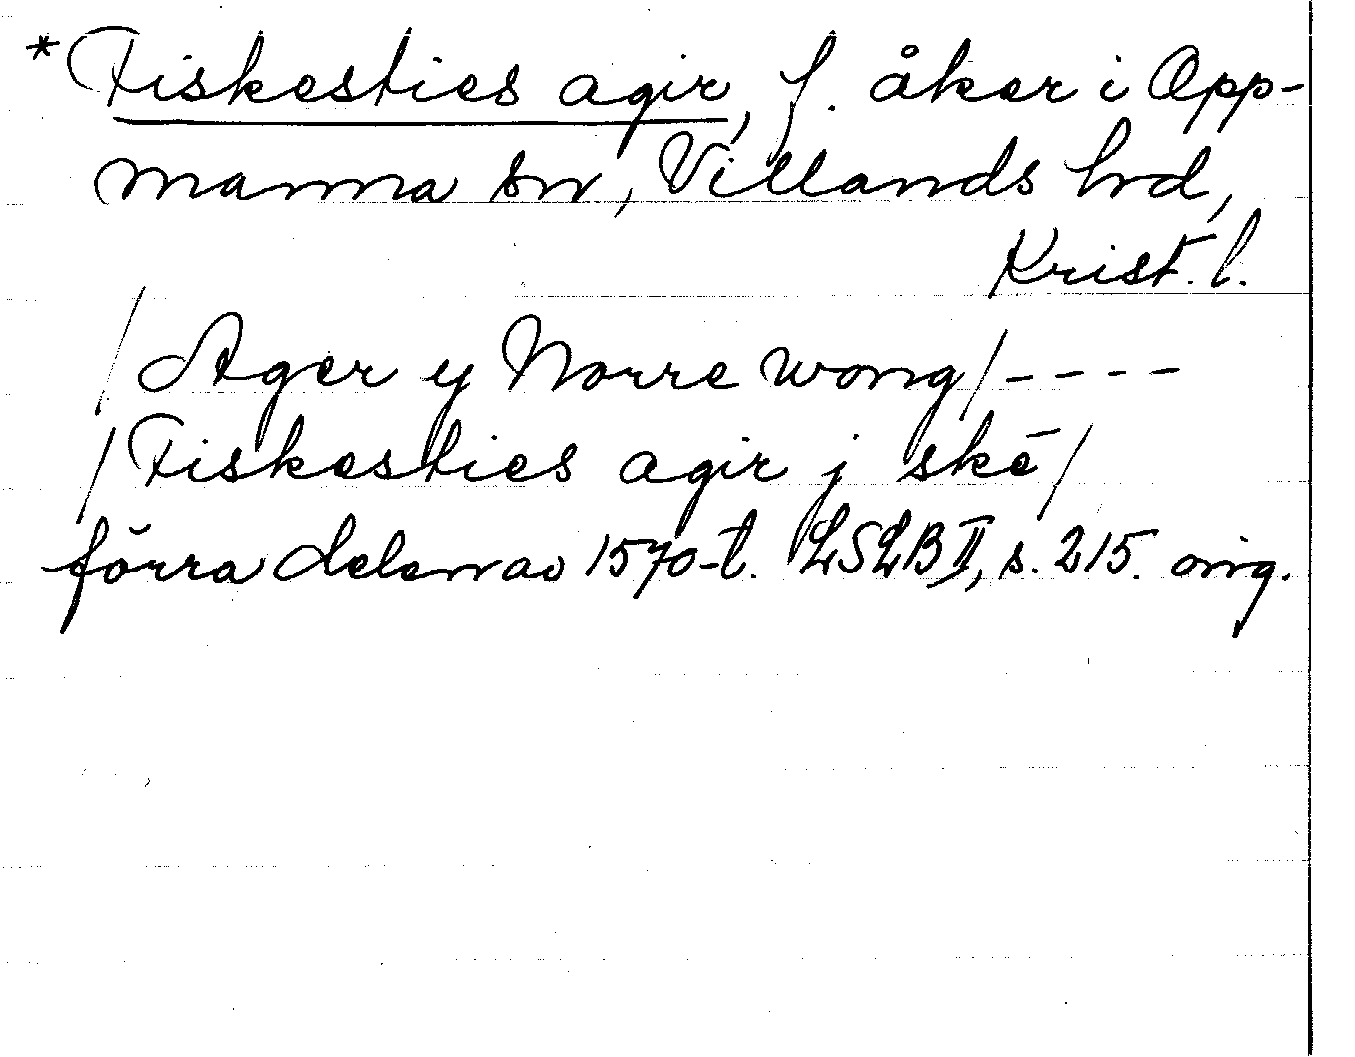 *Fiskesties agir, f. åker i Opp-
manna sn, Villands hrd,
Krist. l.
/Ager y Norre wong/----
/Fiskesties agir j skē/
förra delen av 1570-t. LSLB II, s. 215. orig.